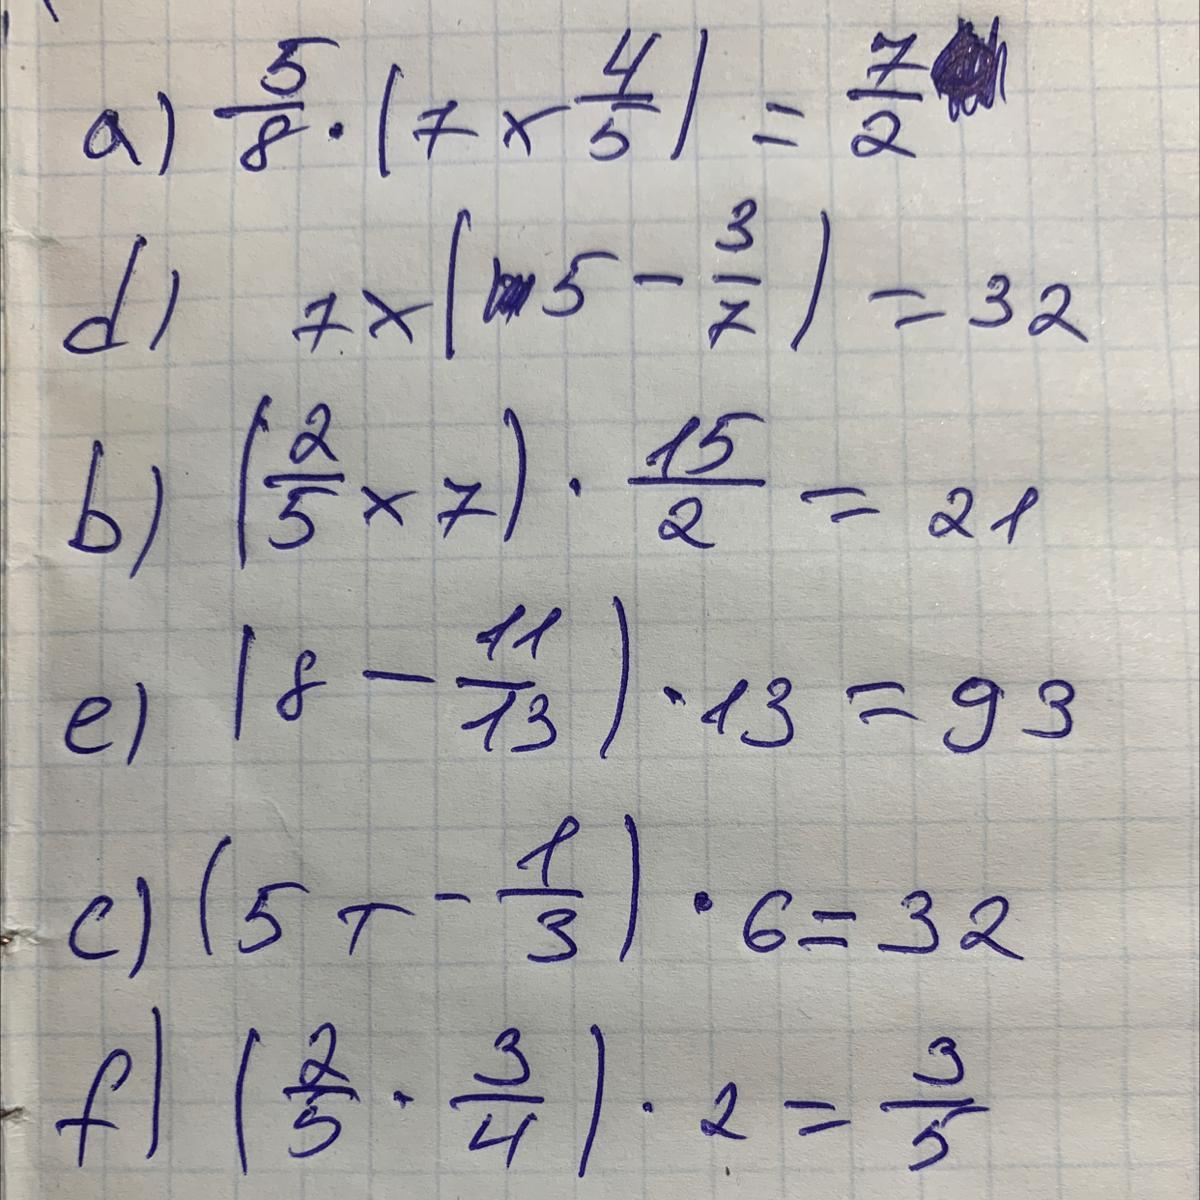 a) 5/8 · (7 × 4/5) = 7/2
d) 7 × (5 - 3/7) = 32
b) (2/5 × 7) · 15/2 = 21
e) (8 - 11/13) · 13 = 93
c) (5 + - 1/3) · 6 = 32
f) (2/5 · 3/4) · 2 = 3/5